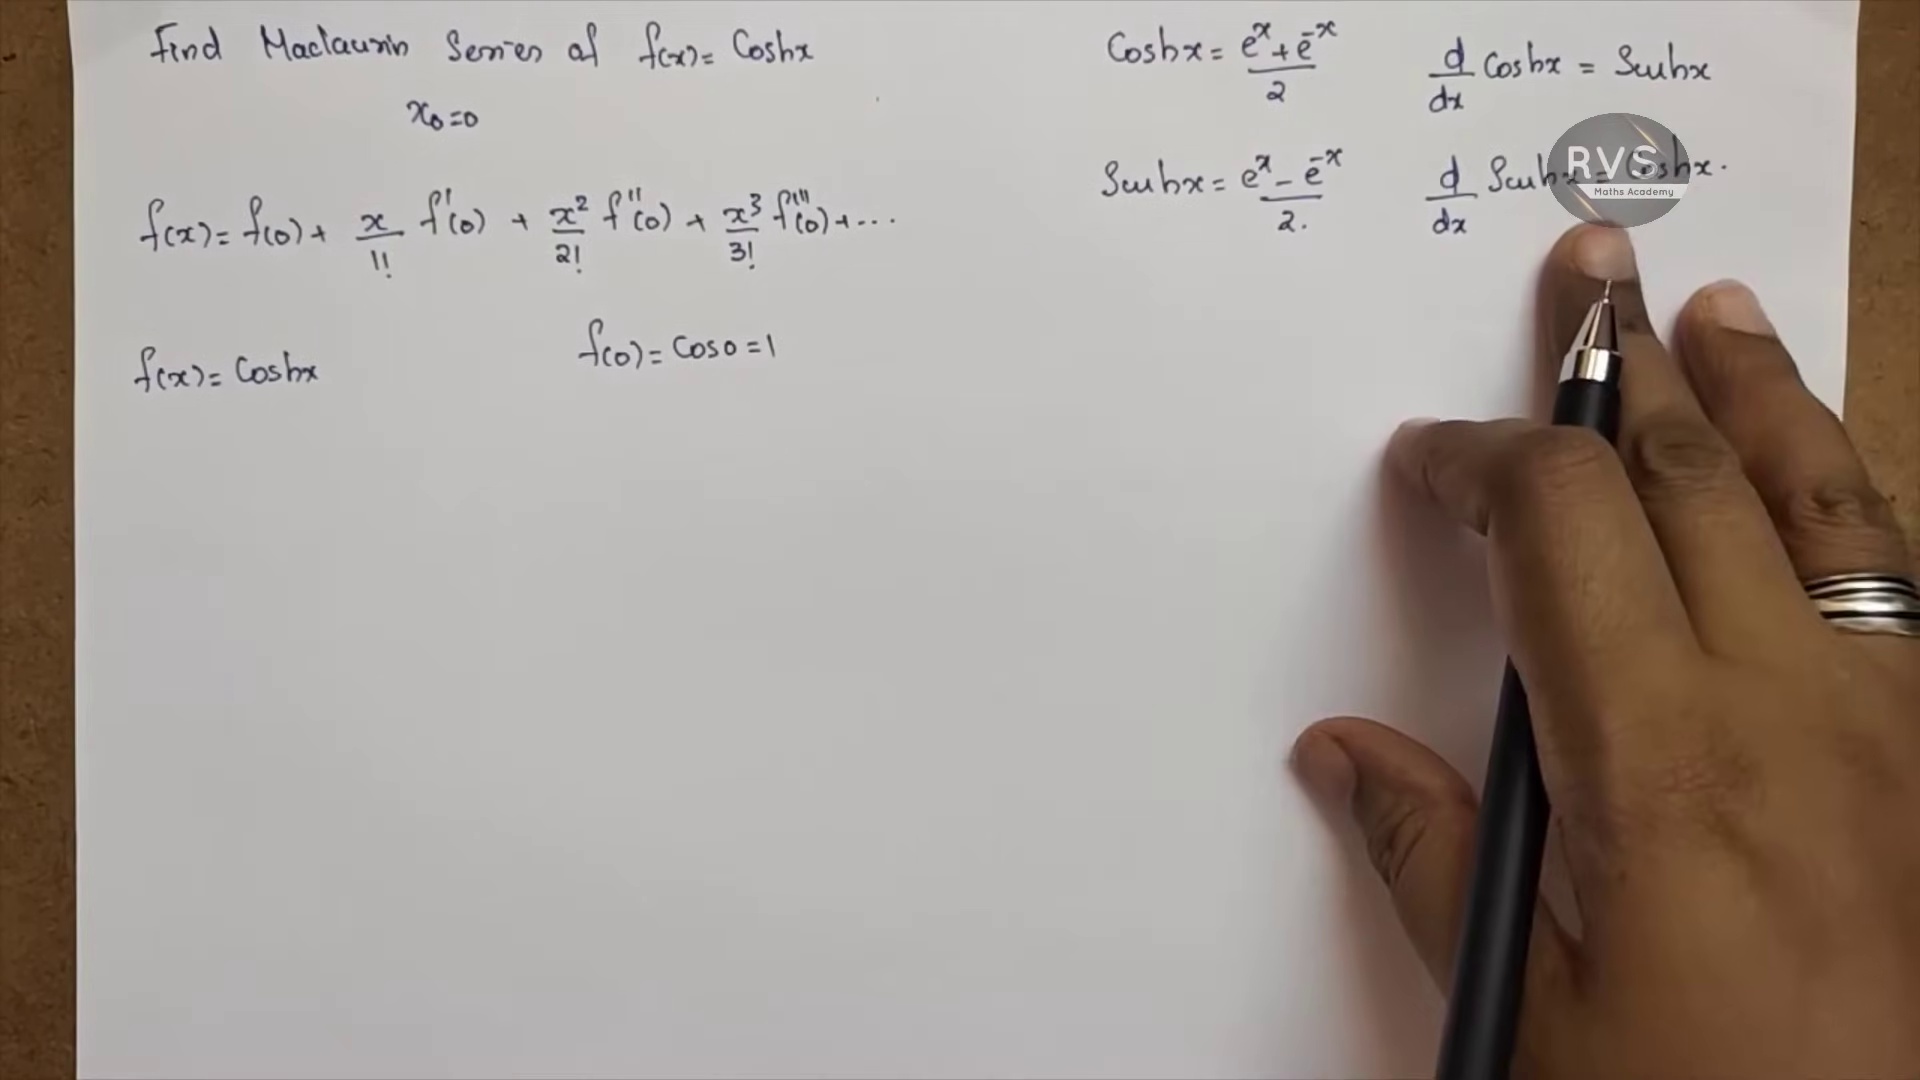 Find Maclaurin Series of f(x) = Coshx
x₀ = 0
f(x) = f(0) + x/1! f'(0) + x²/2! f''(0) + x³/3! f'''(0) + ...
f(x) = Coshx
f(0) = Cos0 = 1
Coshx = (eˣ + e⁻ˣ)/2
d/dx Coshx = Sinhx
Sinhx = (eˣ - e⁻ˣ)/2.
d/dx Sinhx = Coshx.
RVS
Maths Academy